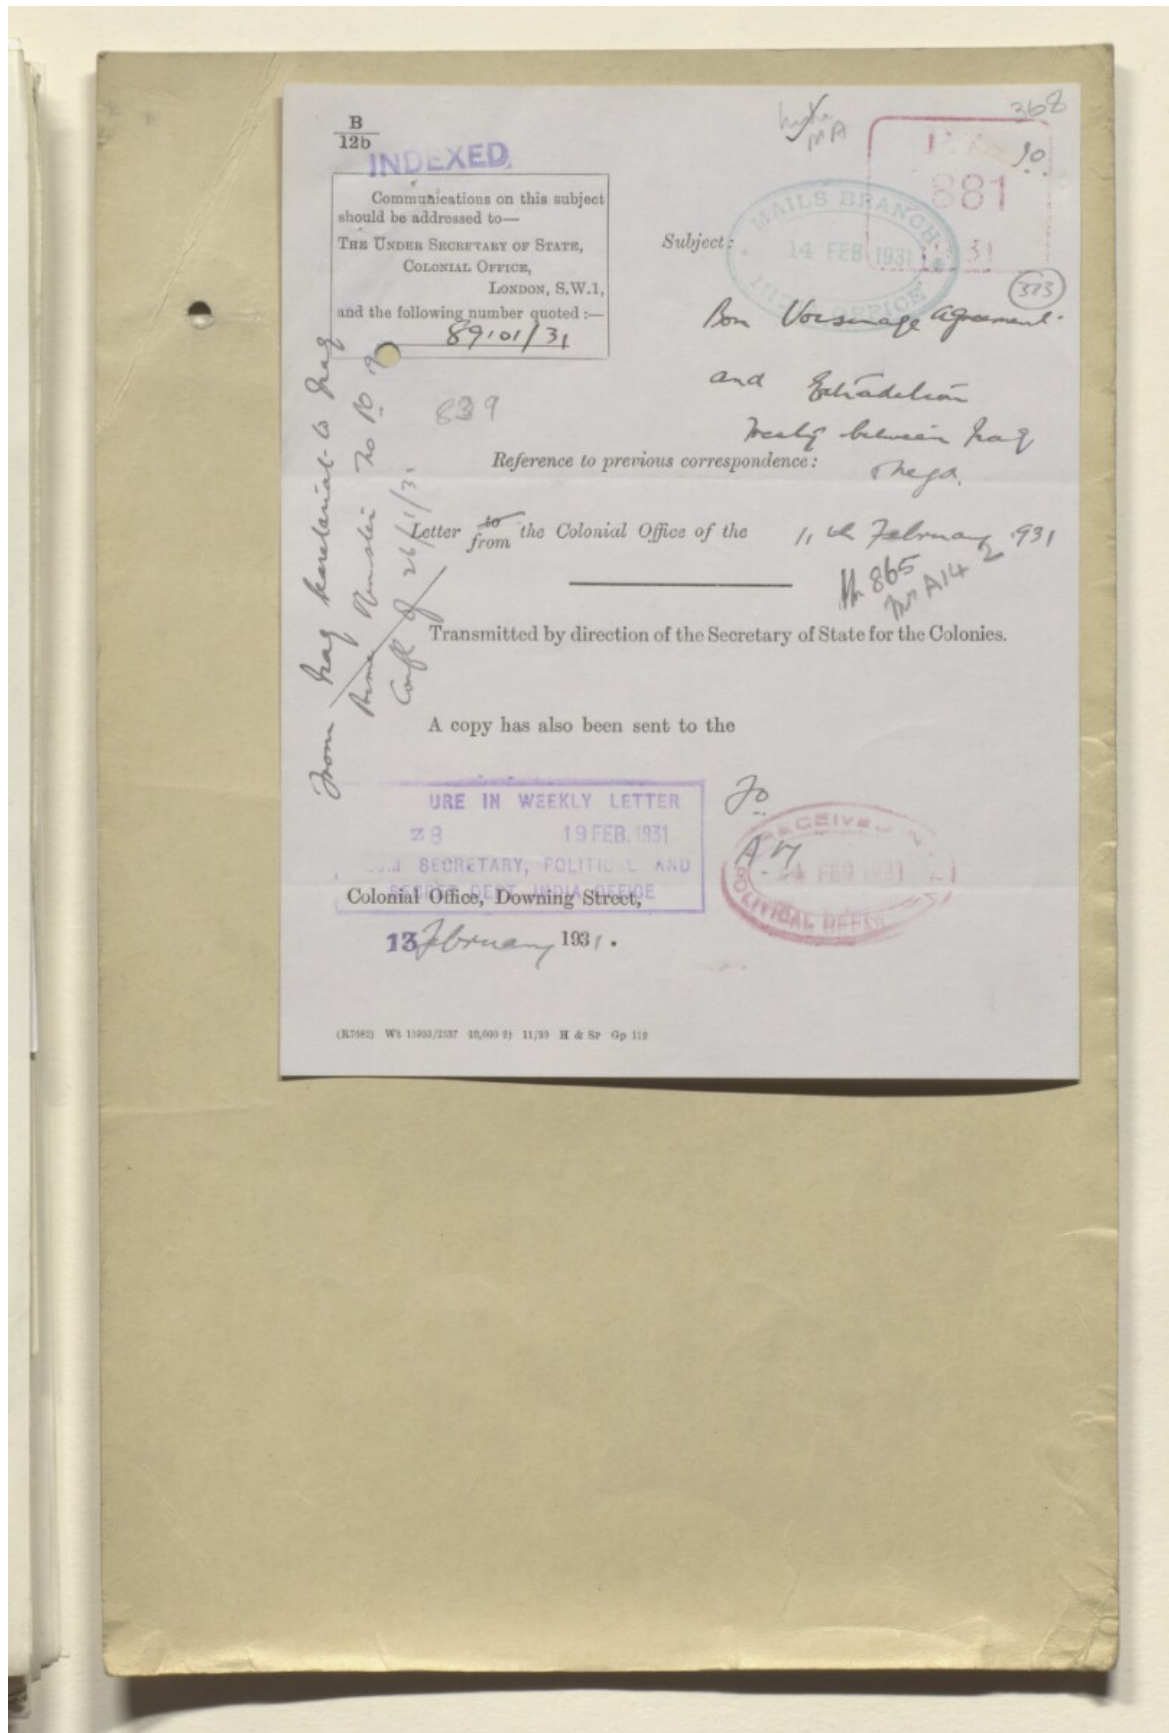 368
B
12b
INDEXED
10
881
31
Communications on this subject
should be addressed to—
THE UNDER SECRETARY OF STATE,
COLONIAL OFFICE,
LONDON, S.W.1,
and the following number quoted :—
89101/31
Subject:
MAILS BRANCH
14 FEB 1931
INDIA OFFICE
373
Bon Voisinage Agreement
and Extradition
Treaty between Iraq
& Nejd.
839
Reference to previous correspondence:
Letter to from the Colonial Office of the 11th February 1931
Transmitted by direction of the Secretary of State for the Colonies.
From Iraq Secretariat to Iraq
Prime Minister No PO
Confl of 26/1/31
A copy has also been sent to the
URE IN WEEKLY LETTER
19 FEB. 1931
SECRETARY, POLITICAL AND
SECRET DEPT. INDIA OFFICE
FO
AM
RECEIVED
14 FEB 1931
POLITICAL DEPARTMENT
Colonial Office, Downing Street,
13 February 1931.
11/30 H & SP Gp 112